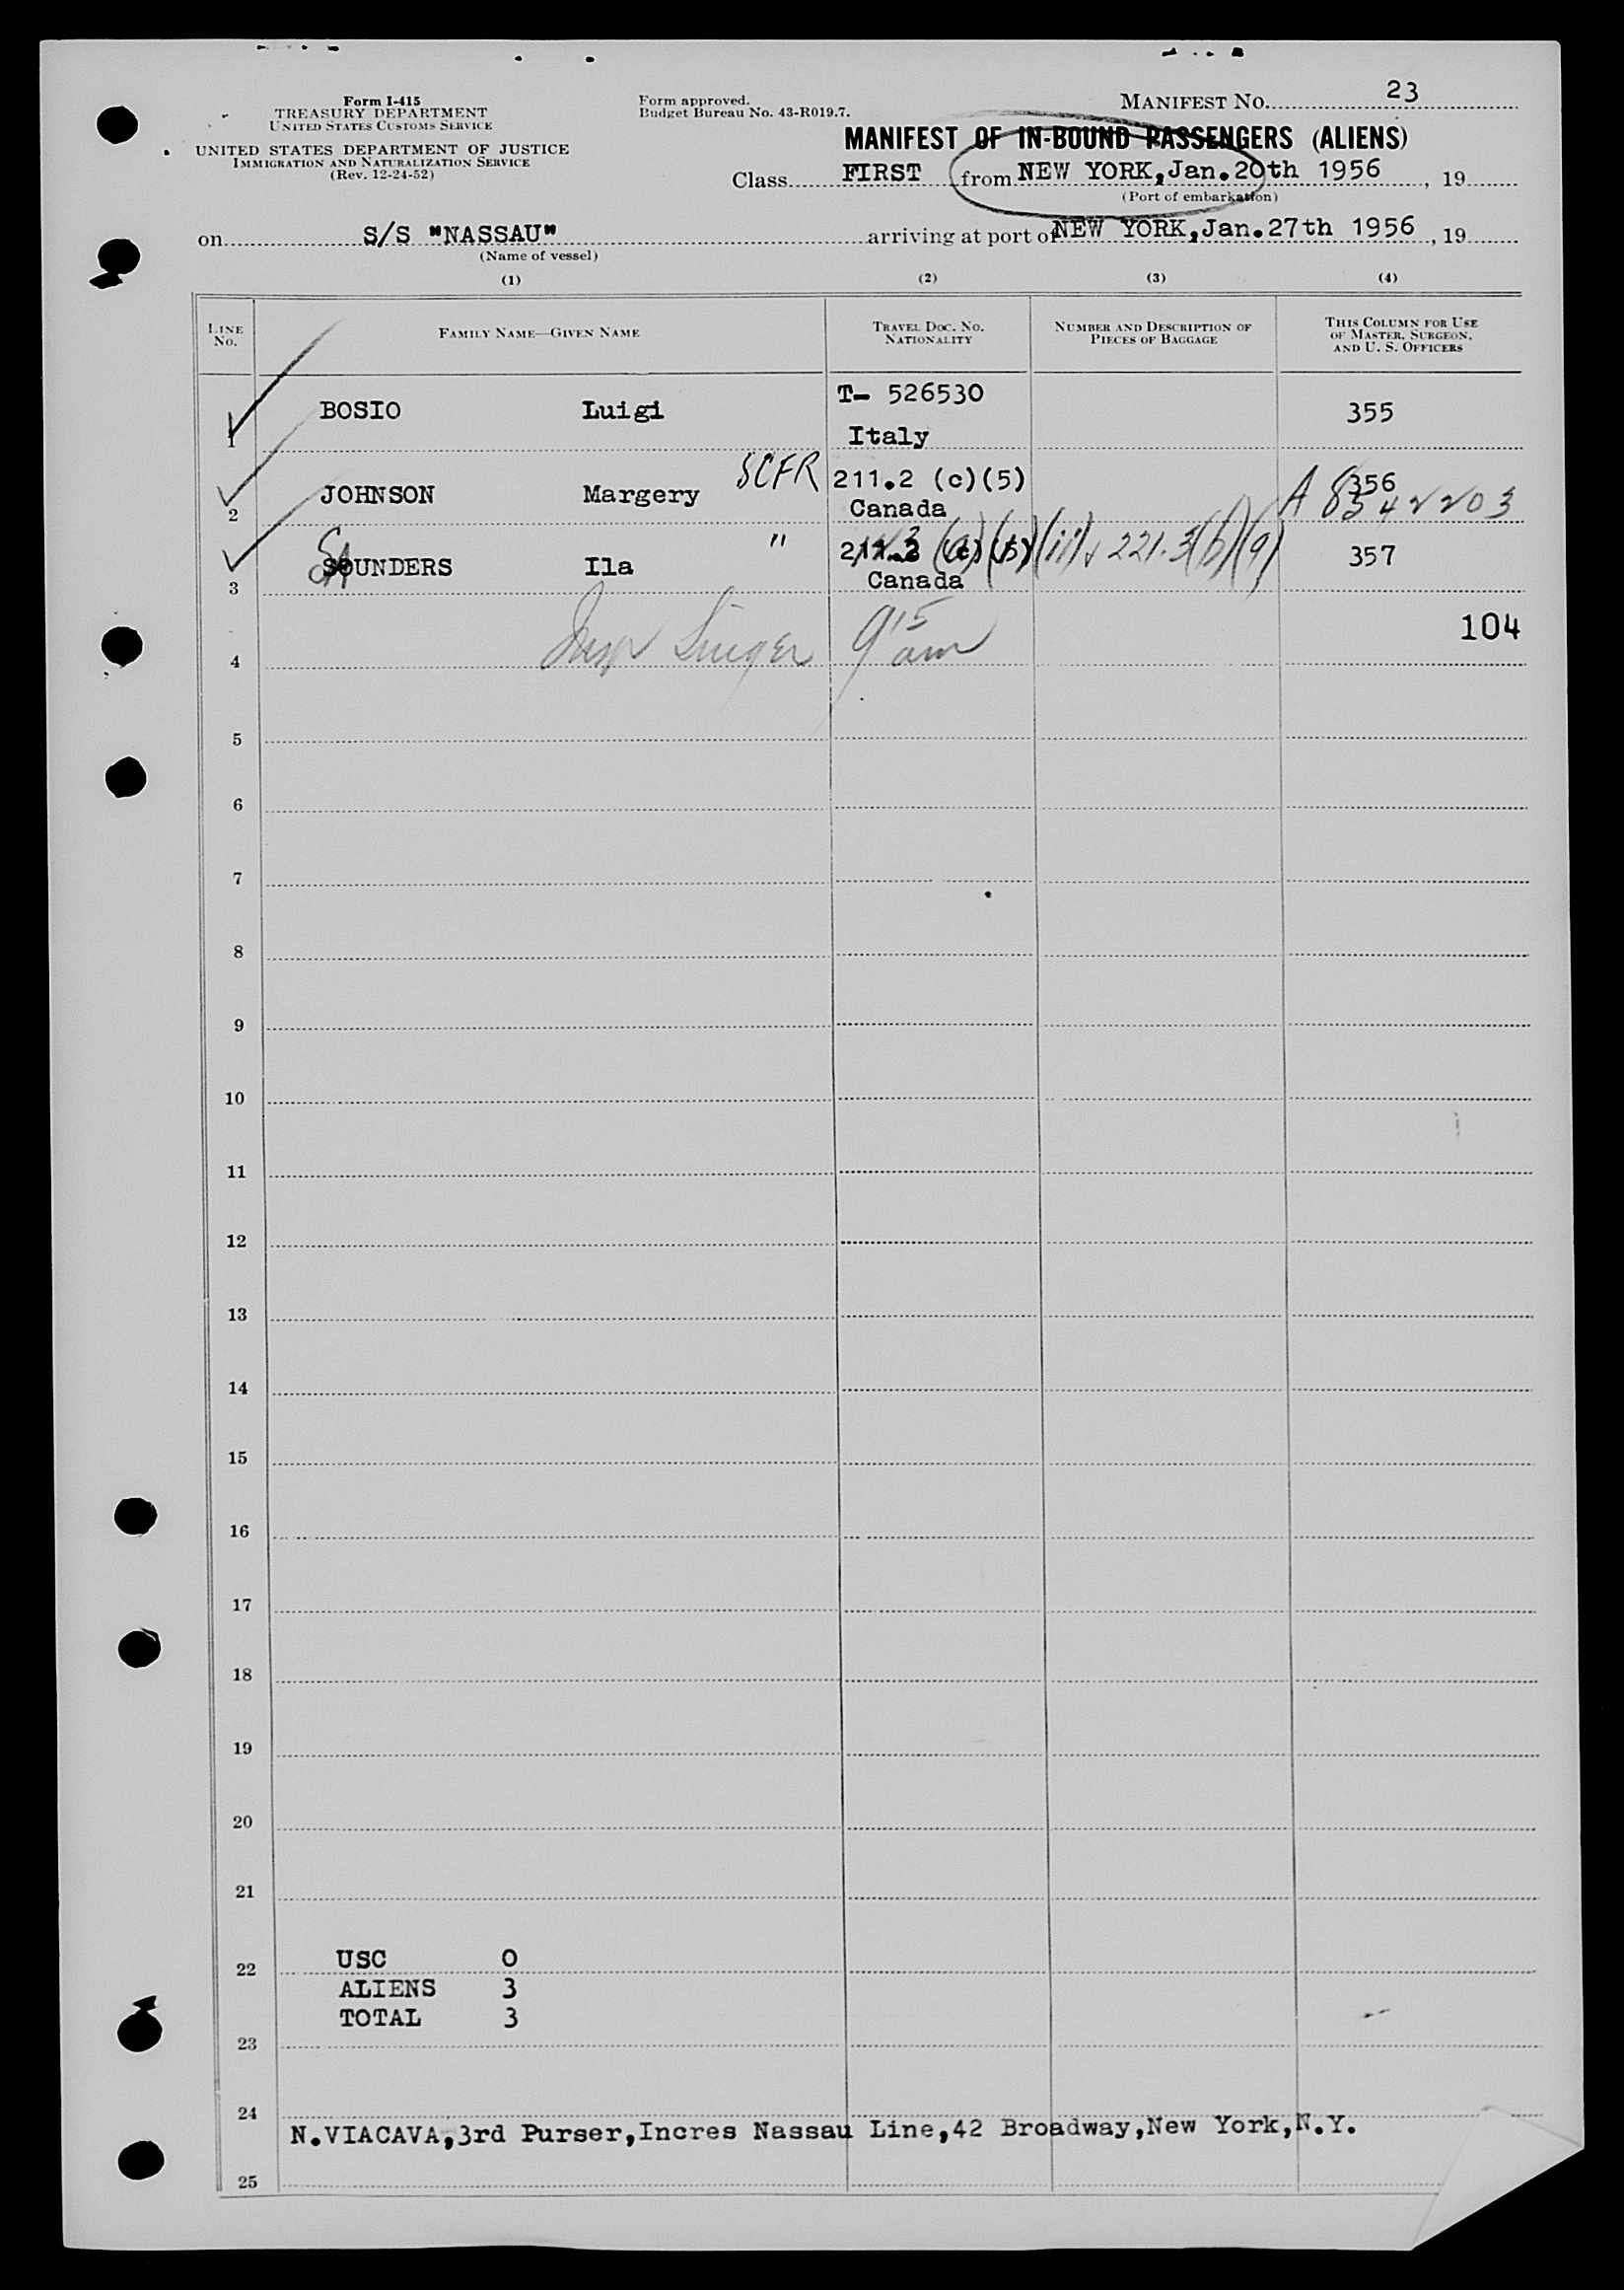 Form I-415
TREASURY DEPARTMENT
UNITED STATES CUSTOMS SERVICE
UNITED STATES DEPARTMENT OF JUSTICE
IMMIGRATION AND NATURALIZATION SERVICE
(Rev. 12-24-52)
Form approved.
Budget Bureau No. 43-R019.7.
MANIFEST NO. 23
MANIFEST OF IN-BOUND PASSENGERS (ALIENS)
Class FIRST from NEW YORK, Jan. 20th 1956, 19
(Port of embarkation)
on S/S "NASSAU" arriving at port of NEW YORK, Jan. 27th 1956, 19
(Name of vessel)
(1) (2) (3) (4)
LINE NO. FAMILY NAME—GIVEN NAME TRAVEL DOC. NO. NATIONALITY NUMBER AND DESCRIPTION OF PIECES OF BAGGAGE THIS COLUMN FOR USE OF MASTER, SURGEON, AND U. S. OFFICERS
1 BOSIO Luigi T- 526530 355
Italy
2 JOHNSON Margery SCFR 211.2 (c)(5) 356
Canada A 8342203
3 SAUNDERS Ila " 221.3(b)(9) 357
Canada
104
4 Insp Singer 9 15 am
5
6
7
8
9
10
11
12
13
14
15
16
17
18
19
20
21
22 USC 0
ALIENS 3
TOTAL 3
23
24
N.VIACAVA, 3rd Purser, Incres Nassau Line, 42 Broadway, New York, N.Y.
25